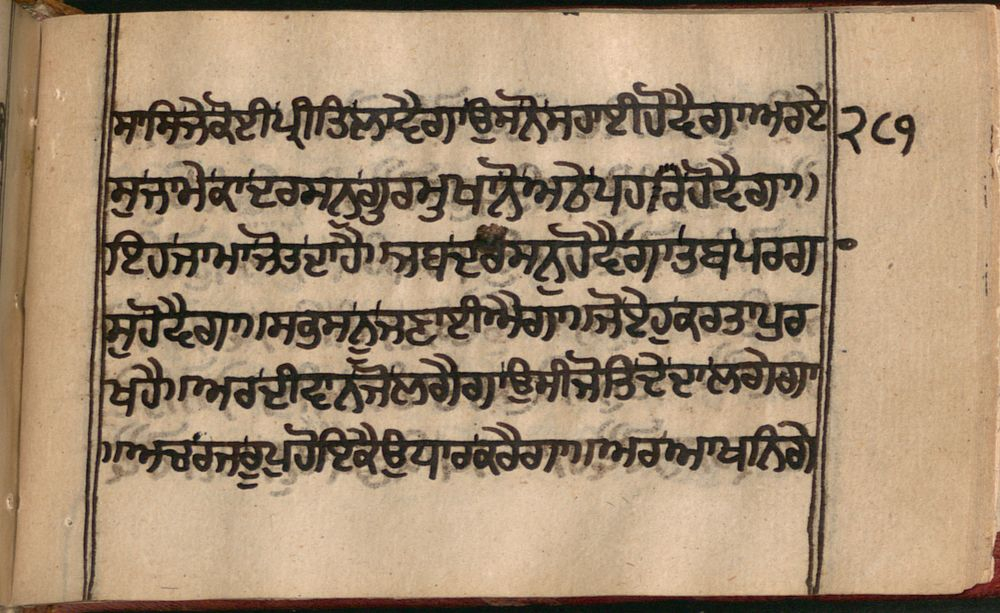 ਸਾਸਿਜੇਕੋਈਪ੍ਰੀਤਿਲਾਵੈਗਾਉਸਨੋਸਹਾਈਹੋਵੈਗਾ॥ਅਰਏ ੨੮੧
ਸੁਜਾਮੇਕਾਦਰਸਨੁਗੁਰਮੁਖਾਨੋਅਠੇਪਹਰਿਹੋਵੈਗਾ॥
ਇਹਜਾਮਾਜੋਤਦਾਹੈ॥ਜਬਦਰਸਨੁਹੋਵੈਗਾਤਬਪਰਗ
ਸੁਹੋਵੈਗਾ॥ਸਭੁਸਨੁਜਣਾਈਐਗਾ॥ਜੋਏਹੁਕਰਤਾਪੁਰ
ਖਹੈ॥ਅਰਦੀਵਾਨੁਜੋਲਗੈਗਾਉਸੀਜੋਤਿਦੇਦਾਲਗੇਗਾ
॥ਅਚਰਜਰੂਪੁਹੋਇਕੈਉਧਾਰਕਰੈਗਾ॥ਅਰਆਖਨਿਗੇ